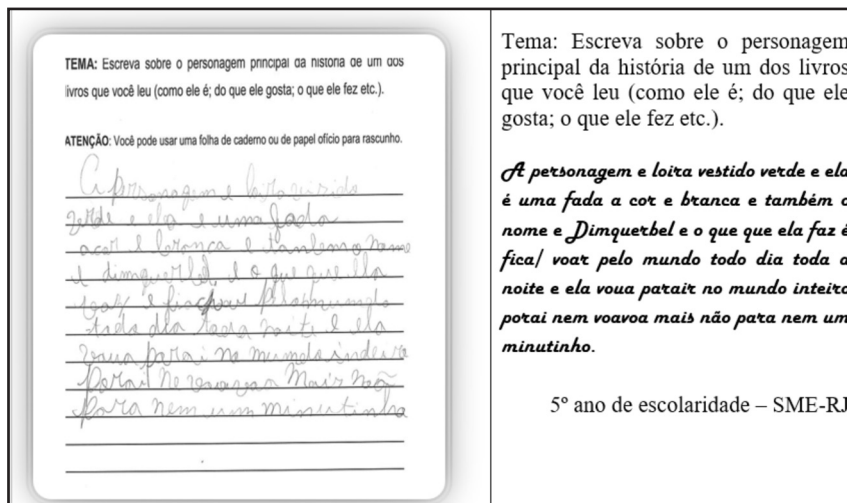 TEMA: Escreva sobre o personagem principal da história de um dos
livros que você leu (como ele é; do que ele gosta; o que ele fez etc.).
ATENÇÃO: Você pode usar uma folha de caderno ou de papel ofício para rascunho.
A prsonagem e loira
verde e ela e uma fada
a cor e branca e
e dimquerbel e o que que ela
e
toda dia noite e ela
voua parai no mundo
porai mais não
para nem um minutinho
Tema: Escreva sobre o personagem
principal da história de um dos livros
que você leu (como ele é; do que ele
gosta; o que ele fez etc.).
A personagem e loira vestido verde e ela
é uma fada a cor e branca e também o
nome e Dimquerbel e o que que ela faz é
fica/ voar pelo mundo todo dia toda a
noite e ela voua parair no mundo inteiro
porai nem voavoa mais não para nem um
minutinho.
5º ano de escolaridade – SME-RJ